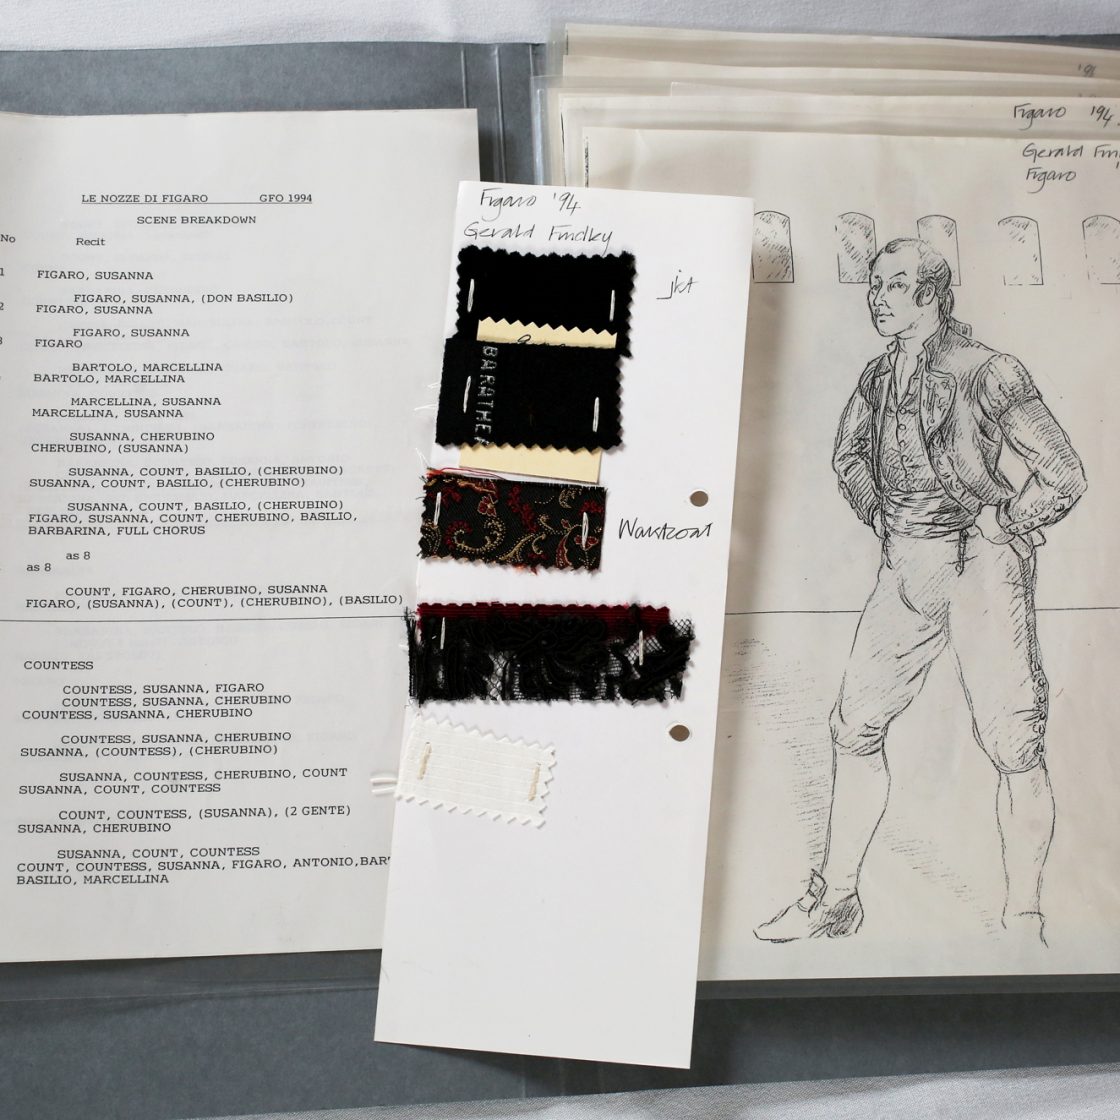 LE NOZZE DI FIGARO GFO 1994
SCENE BREAKDOWN
No Recit
1 FIGARO, SUSANNA
FIGARO, SUSANNA, (DON BASILIO)
2 FIGARO, SUSANNA
FIGARO, SUSANNA
3 FIGARO
BARTOLO, MARCELLINA
BARTOLO, MARCELLINA
MARCELLINA, SUSANNA
MARCELLINA, SUSANNA
SUSANNA, CHERUBINO
CHERUBINO, (SUSANNA)
SUSANNA, COUNT, BASILIO, (CHERUBINO)
SUSANNA, COUNT, BASILIO, (CHERUBINO)
SUSANNA, COUNT, BASILIO, (CHERUBINO)
FIGARO, SUSANNA, COUNT, CHERUBINO, BASILIO,
BARBARINA, FULL CHORUS
as 8
as 8
COUNT, FIGARO, CHERUBINO, SUSANNA
FIGARO, (SUSANNA), (COUNT), (CHERUBINO), (BASILIO)
COUNTESS
COUNTESS, SUSANNA, FIGARO
COUNTESS, SUSANNA, CHERUBINO
COUNTESS, SUSANNA, CHERUBINO
COUNTESS, SUSANNA, CHERUBINO
SUSANNA, (COUNTESS), (CHERUBINO)
SUSANNA, COUNTESS, CHERUBINO, COUNT
SUSANNA, COUNT, COUNTESS
COUNT, COUNTESS, (SUSANNA), (2 GENTE)
SUSANNA, CHERUBINO
SUSANNA, COUNT, COUNTESS
COUNT, COUNTESS, SUSANNA, FIGARO, ANTONIO, BART
BASILIO, MARCELLINA
Figaro '94
Gerald Findley
jkt
BARATHEA
Waistcoat
Figaro '94
Gerald Fin
Figaro